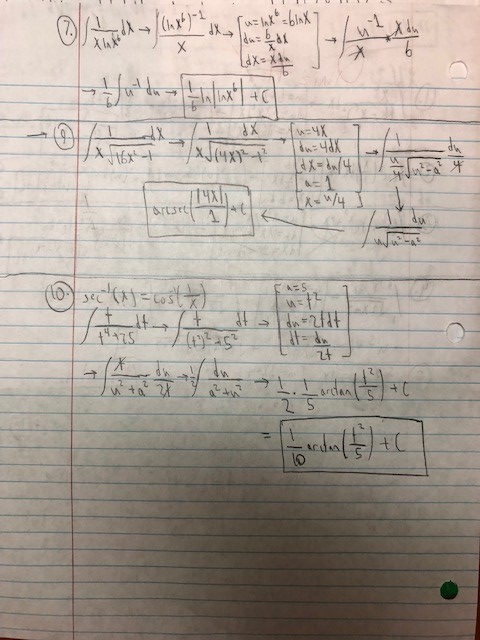 7. ∫ 1/(x ln x⁶) dx → ∫ (ln x⁶)⁻¹/x dx → [u = ln x⁶ = 6 ln x, du = 6/x dx, dx = x du/6] → ∫ u⁻¹/x * x du/6
→ 1/6 ∫ u⁻¹ du → 1/6 ln|ln x⁶| + C
→ 9. ∫ 1/(x√(16x²-1)) dx → ∫ 1/(x√((4x)²-1²)) dx → [u = 4x, du = 4dx, dx = du/4, a = 1, x = u/4] → ∫ 1/(u/4 √(u²-a²)) du/4
↓
∫ 1/(u√(u²-a²)) du
← arcsec(|4x|/1) + C
10. sec⁻¹(x) = cos(1/x)
∫ t/(t⁴+25) dt → ∫ t/((t)²+5²) dt → [a = 5, u = t², du = 2t dt, dt = du/2t]
→ ∫ t/(u²+a²) du/2t → 1/2 ∫ du/(a²+u²) → 1/2 · 1/5 arctan(t²/5) + C
= 1/10 arctan(t²/5) + C